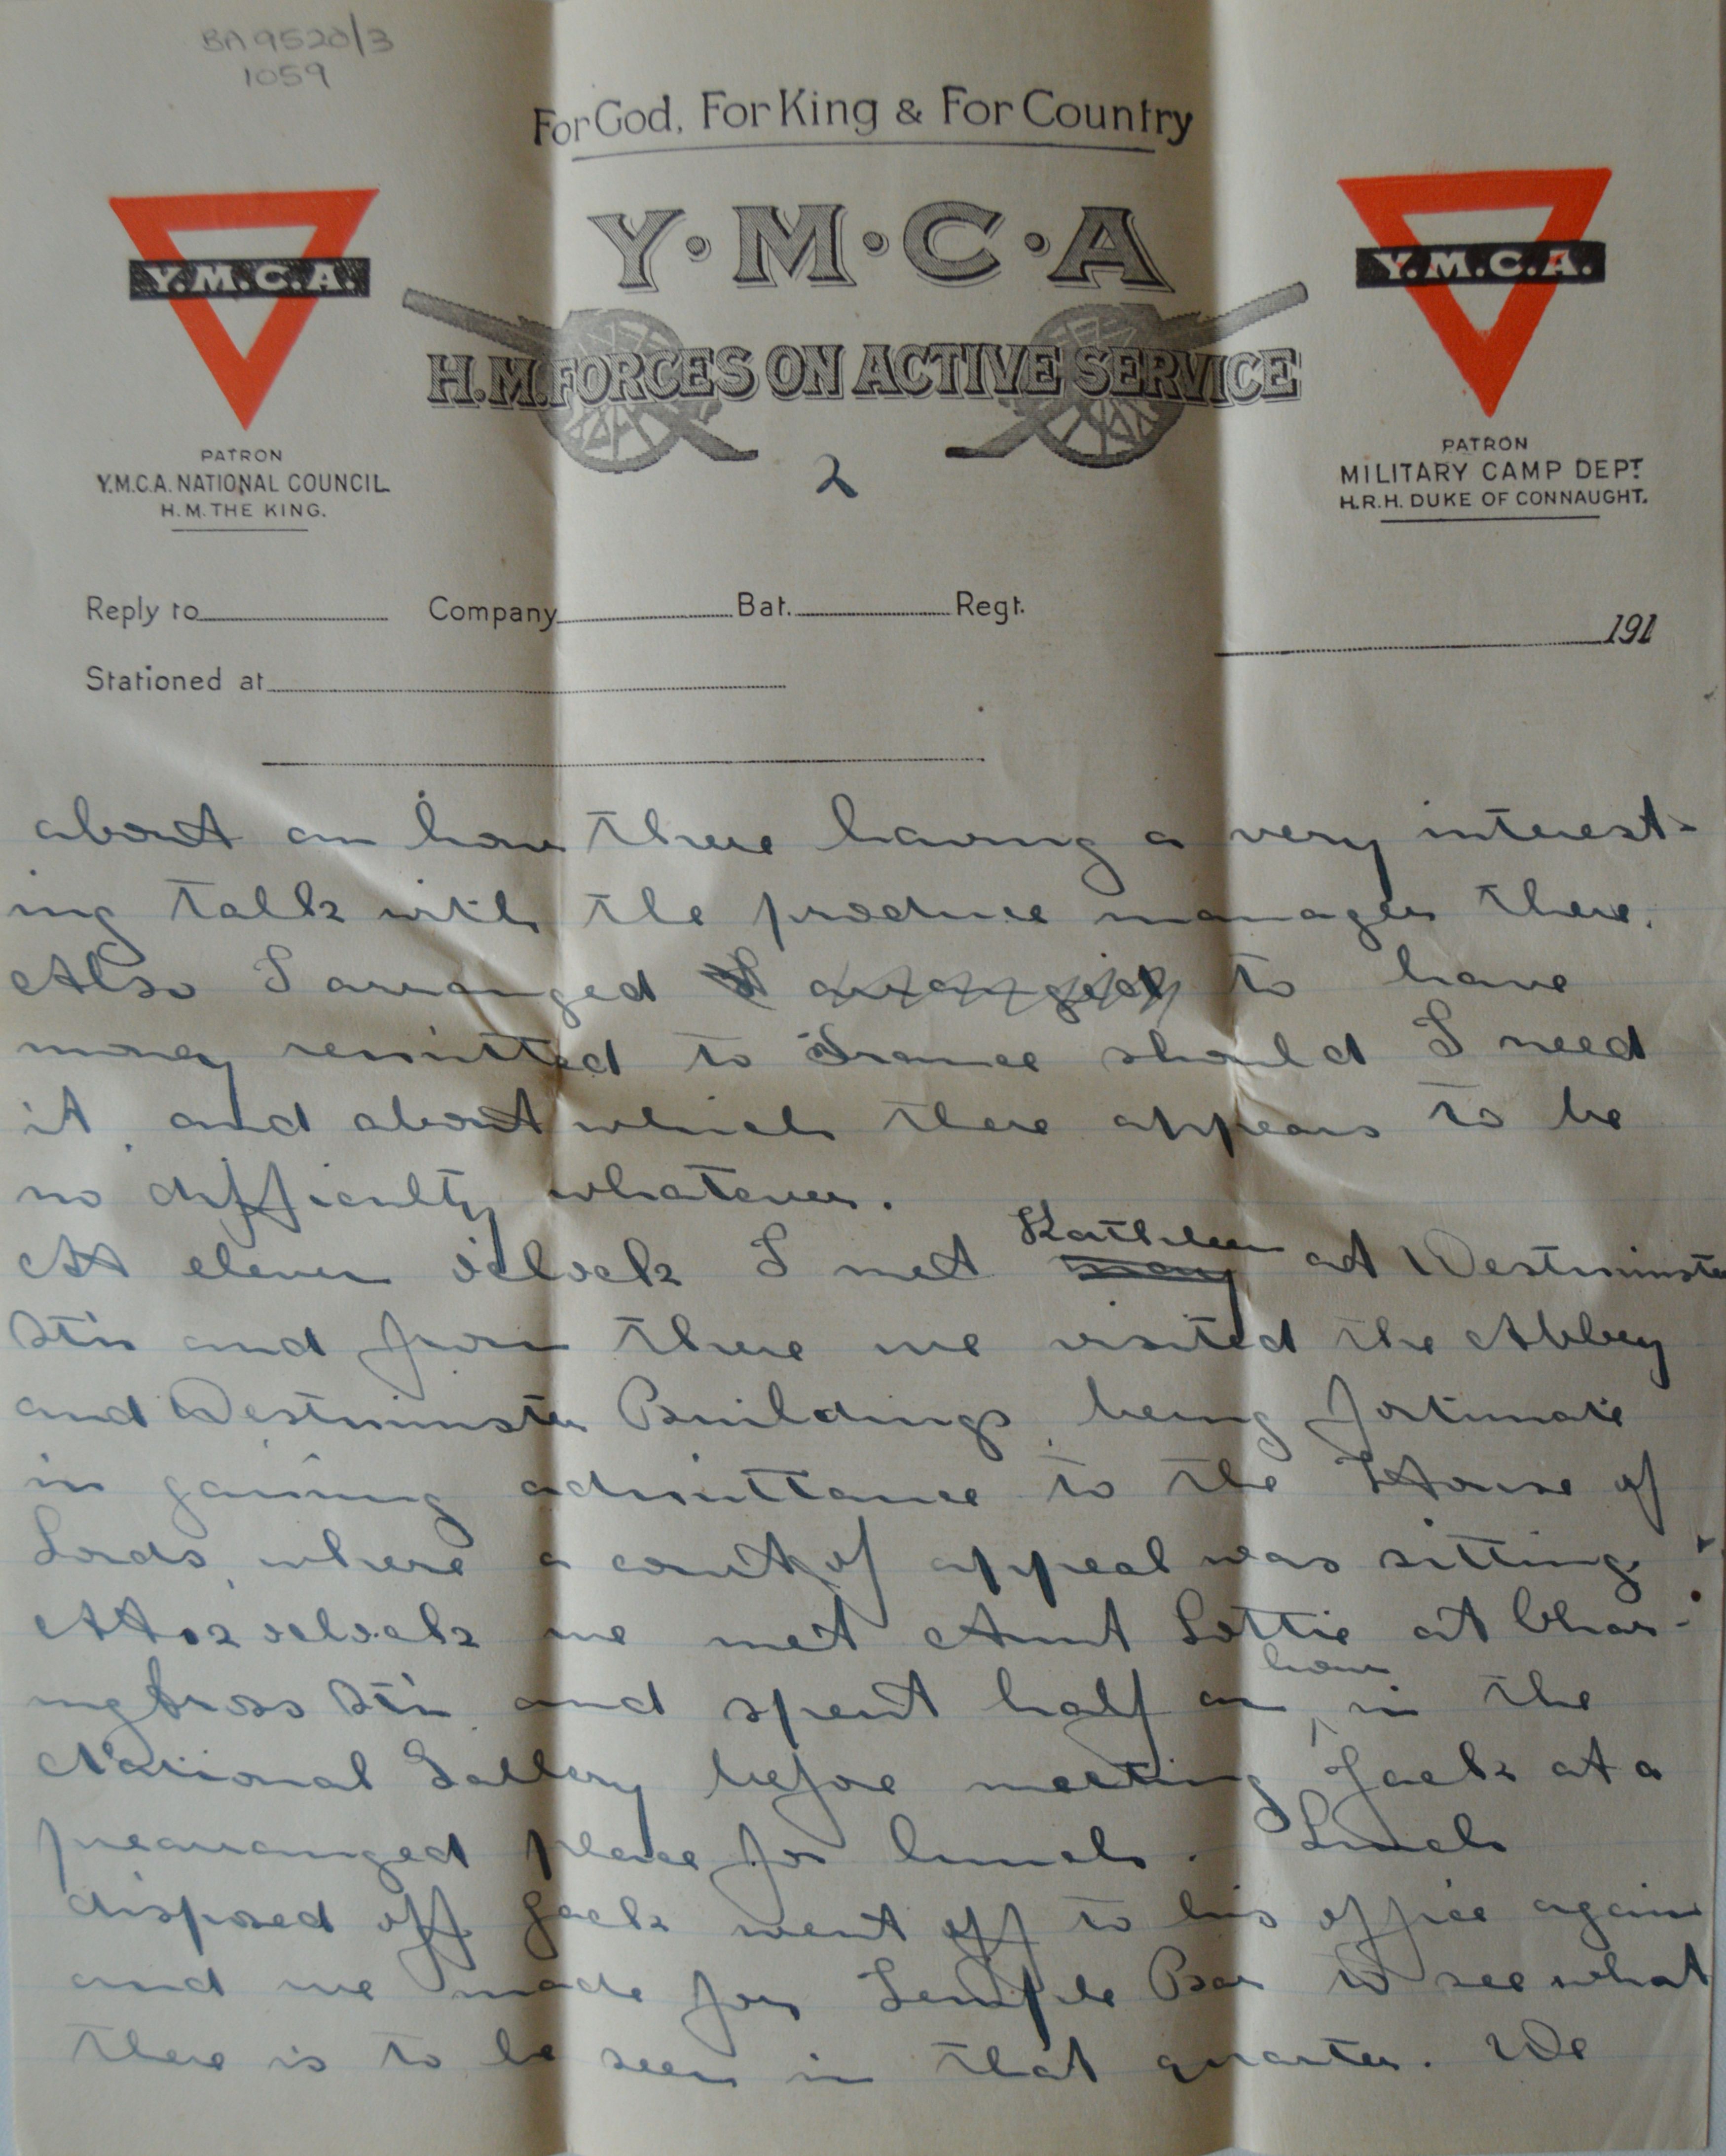 BA9520/3
1059
For God, For King & For Country
Y.M.C.A.
Y·M·C·A
Y.M.C.A.
H.M. FORCES ON ACTIVE SERVICE
PATRON
Y.M.C.A. NATIONAL COUNCIL
H.M. THE KING.
2
PATRON
MILITARY CAMP DEPT.
H.R.H. DUKE OF CONNAUGHT.
Reply to Company Bat. Regt.
191
Stationed at
about an hour there having a very interest-
ing talk with the produce manager there.
Also I arranged I arranged to have
money remitted to France should I need
it, and about which there appears to be
no difficulty whatever.
At eleven o'clock I met Kathleen at Westminster
Stn and from there we visited the Abbey
and Westminster Buildings, being fortunate
in gaining admittance to the House of
Lords, where a court of appeal was sitting.
At 12 oclock we met Aunt Lottie at Char-
ing Cross Stn and spent half an hour in the
National Gallery before meeting Jack at a
prearranged place for lunch. Lunch
disposed off Jack went off to his office again
and we made for Temple Bar to see what
there is to be seen in that quarter. We